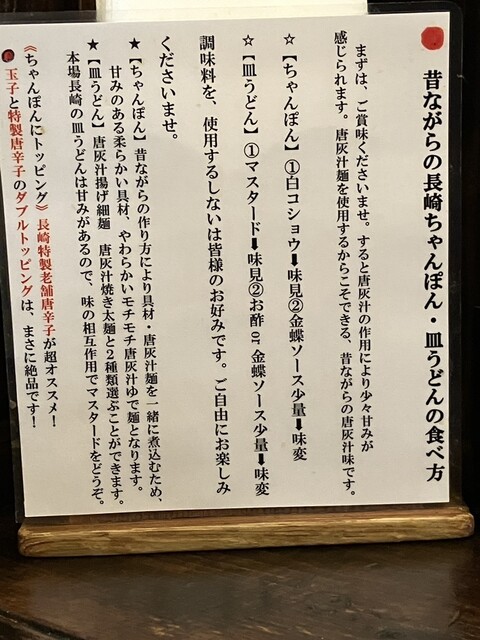 ● 昔ながらの長崎ちゃんぽん・皿うどんの食べ方
まずは、ご賞味くださいませ。すると唐灰汁の作用により少々甘みが
感じられます。唐灰汁麺を使用するからこそできる、昔ながらの唐灰汁味です。
☆【ちゃんぽん】①白コショウ➡味見②金蝶ソース少量➡味変
☆【皿うどん】①マスタード➡味見②お酢or金蝶ソース少量➡味変
調味料を、使用するしないは皆様のお好みです。ご自由にお楽しみ
くださいませ。
★【ちゃんぽん】昔ながらの作り方により具材・唐灰汁麺を一緒に煮込むため、
甘みのある柔らかい具材、やわらかいモチモチ唐灰汁ゆで麺となります。
★【皿うどん】唐灰汁揚げ細麺 唐灰汁焼き太麺と2種類選ぶことができます。
本場長崎の皿うどんは甘みがあるので、味の相互作用でマスタードをどうぞ。
《ちゃんぽんにトッピング》長崎特製老舗唐辛子が超オススメ!
● 玉子と特製唐辛子のダブルトッピングは、まさに絶品です!